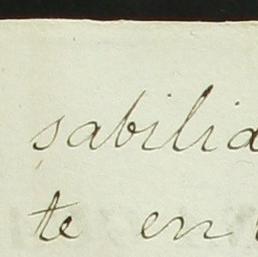 sabilida
te en